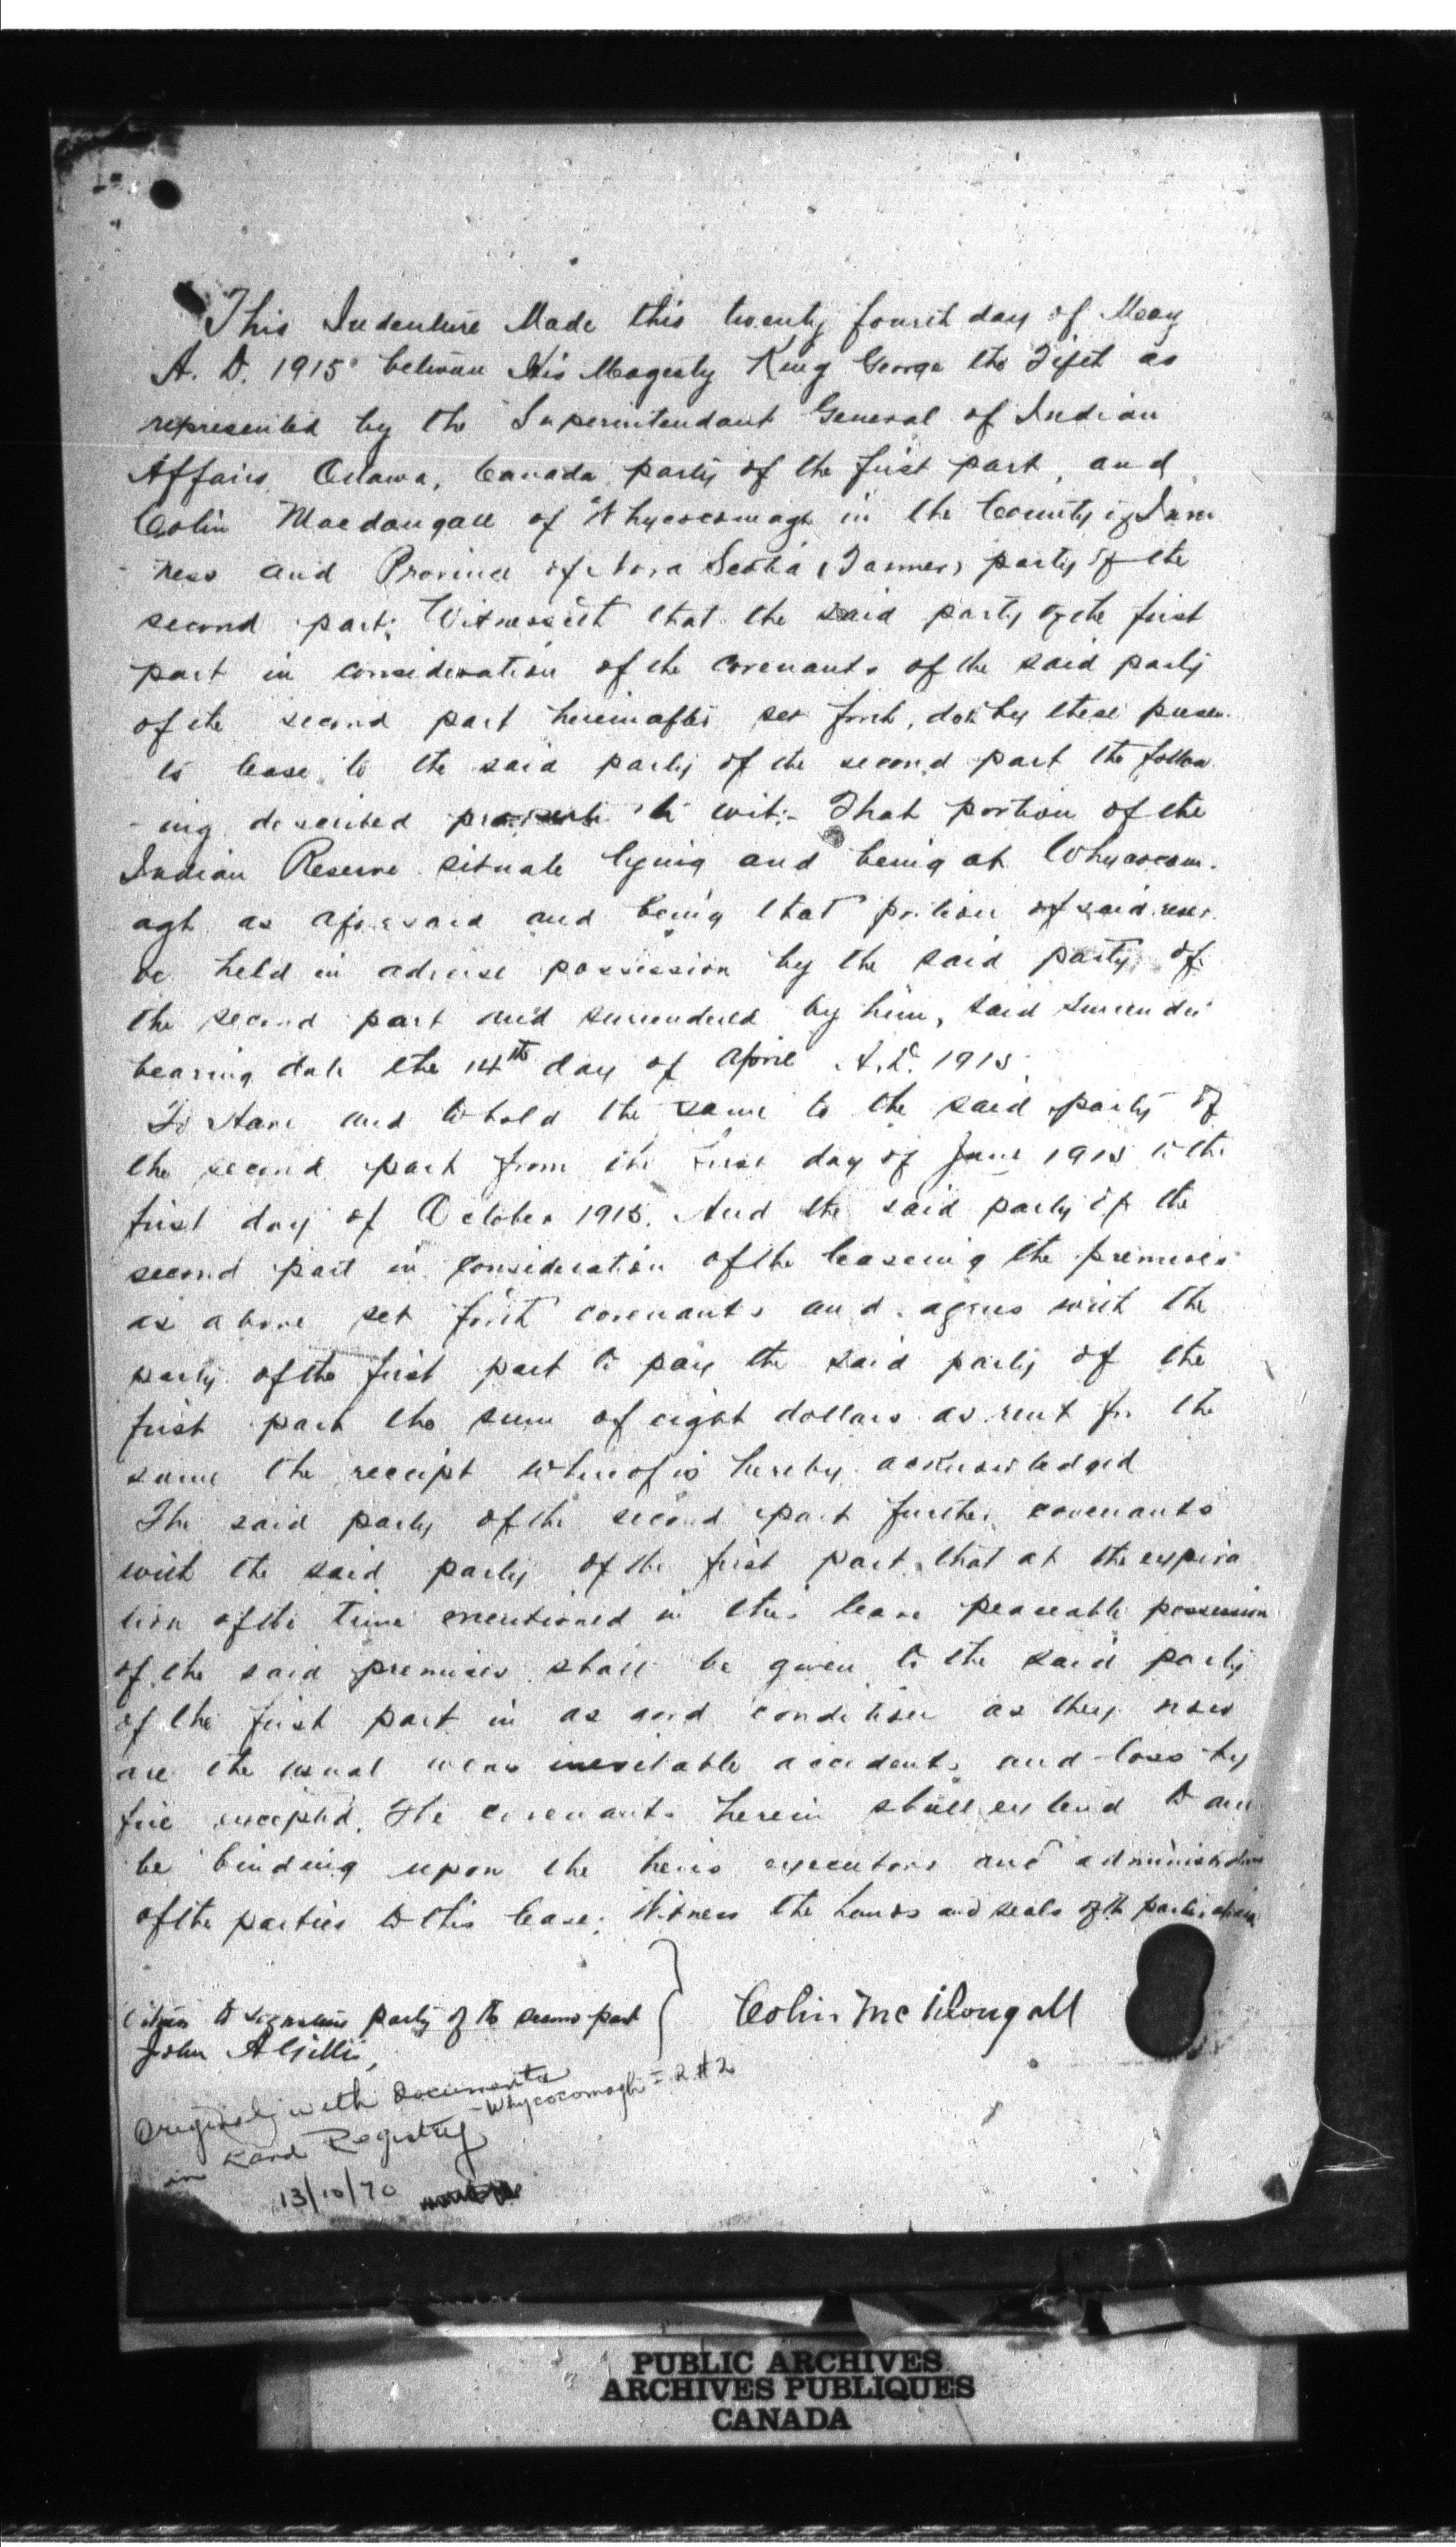 This Indenture Made this twenty fourth day of May
A. D. 1915 between His Magesty King George the Fifth as
represented by the Superintendant General of Indian
Affairs, Ottawa, Canada, party of the first part, and
Colin Macdougall of Whycocomagh in the County of Inver
ness and Province of Nova Scotia (Farmer) party of the
second part; Witnesseth that the said party of the first
part in consideration of the covenants of the said party
of the second part hereinafter set forth, doth by these presen
ts lease to the said party of the second part the follow
-ing described to wit:- That portion of the
Indian Reserve situate lying and being at Whycocom-
agh as aforesaid and being that portion of said reser
ve held in adverse possession by the said party of
the second part and surrendered by him, said surrender
bearing date the 14th day of April A.D. 1915
To Have and to hold the same to the said party of
the second part from the first day of June 1915 to the
first day of October 1915. And the said party of the
second part in consideration of the leaseing the premises
as above set forth covenants and agrees with the
party of the first part to pay the said party of the
first part the sum of eight dollars as rent for the
same the receipt whereof is hereby acknowledged
The said party of the second part further covenants
with the said party of the first part that at the expira
tion of the time mentioned in this lease peaceable possession
of the said premises shall be given to the said party
of the first part in as good condition as they now
are the usual wear inevitable accidents and loss by
fire excepted. The covenants herein shall extend to and
be binding upon the heirs executors and administrators
of the parties to this lease: Witness the hands and seals of the parties
Witness to signature party of the second part
Colin McDougall
John A Gillis,
Originally with Documents
in Land Registry - Whycocomagh - I-2 #2
13/10/70
PUBLIC ARCHIVES
ARCHIVES PUBLIQUES
CANADA